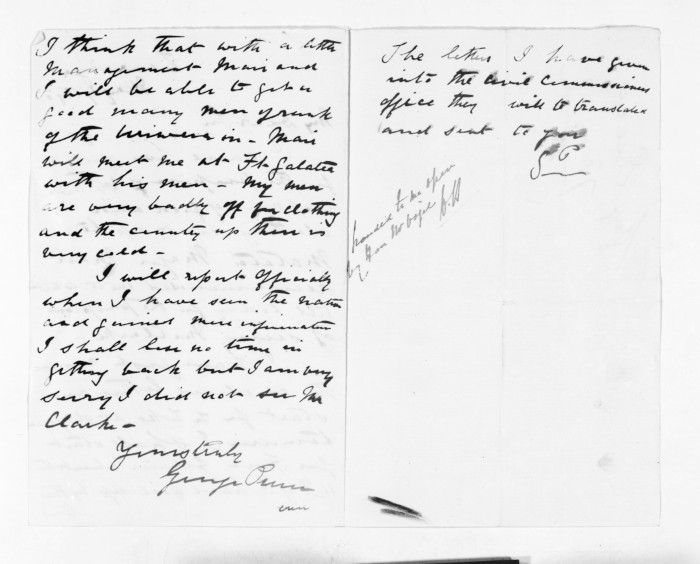 I think that with a little
Management Mair and
I will be able to get a
good many men of rank
of the Urewera in - Mair
will meet me at Ft. Galatea
with his men - My men
are very badly off for clothing
and the country up there is
very cold -
I will report officially
when I have seen the natives
and gained more information
I shall lose no time in
getting back but I am very
sorry I did not see Mr
Clarke -
Yours truly
George Preece
The letters I have given
into the Civil Commissioners
office they will be translated
and sent to you
GP
handed to me open
by